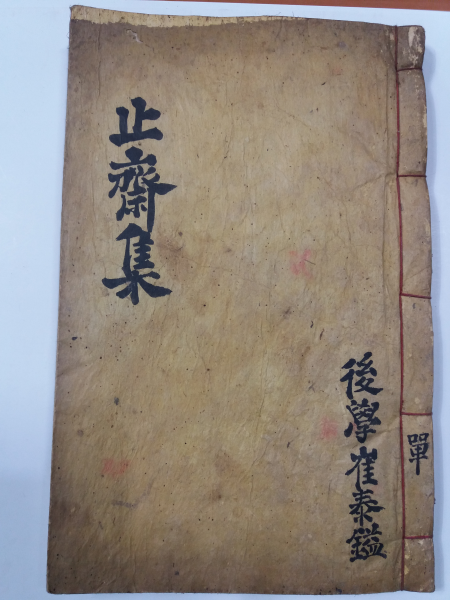 止齋集
後學崔泰鎰
單